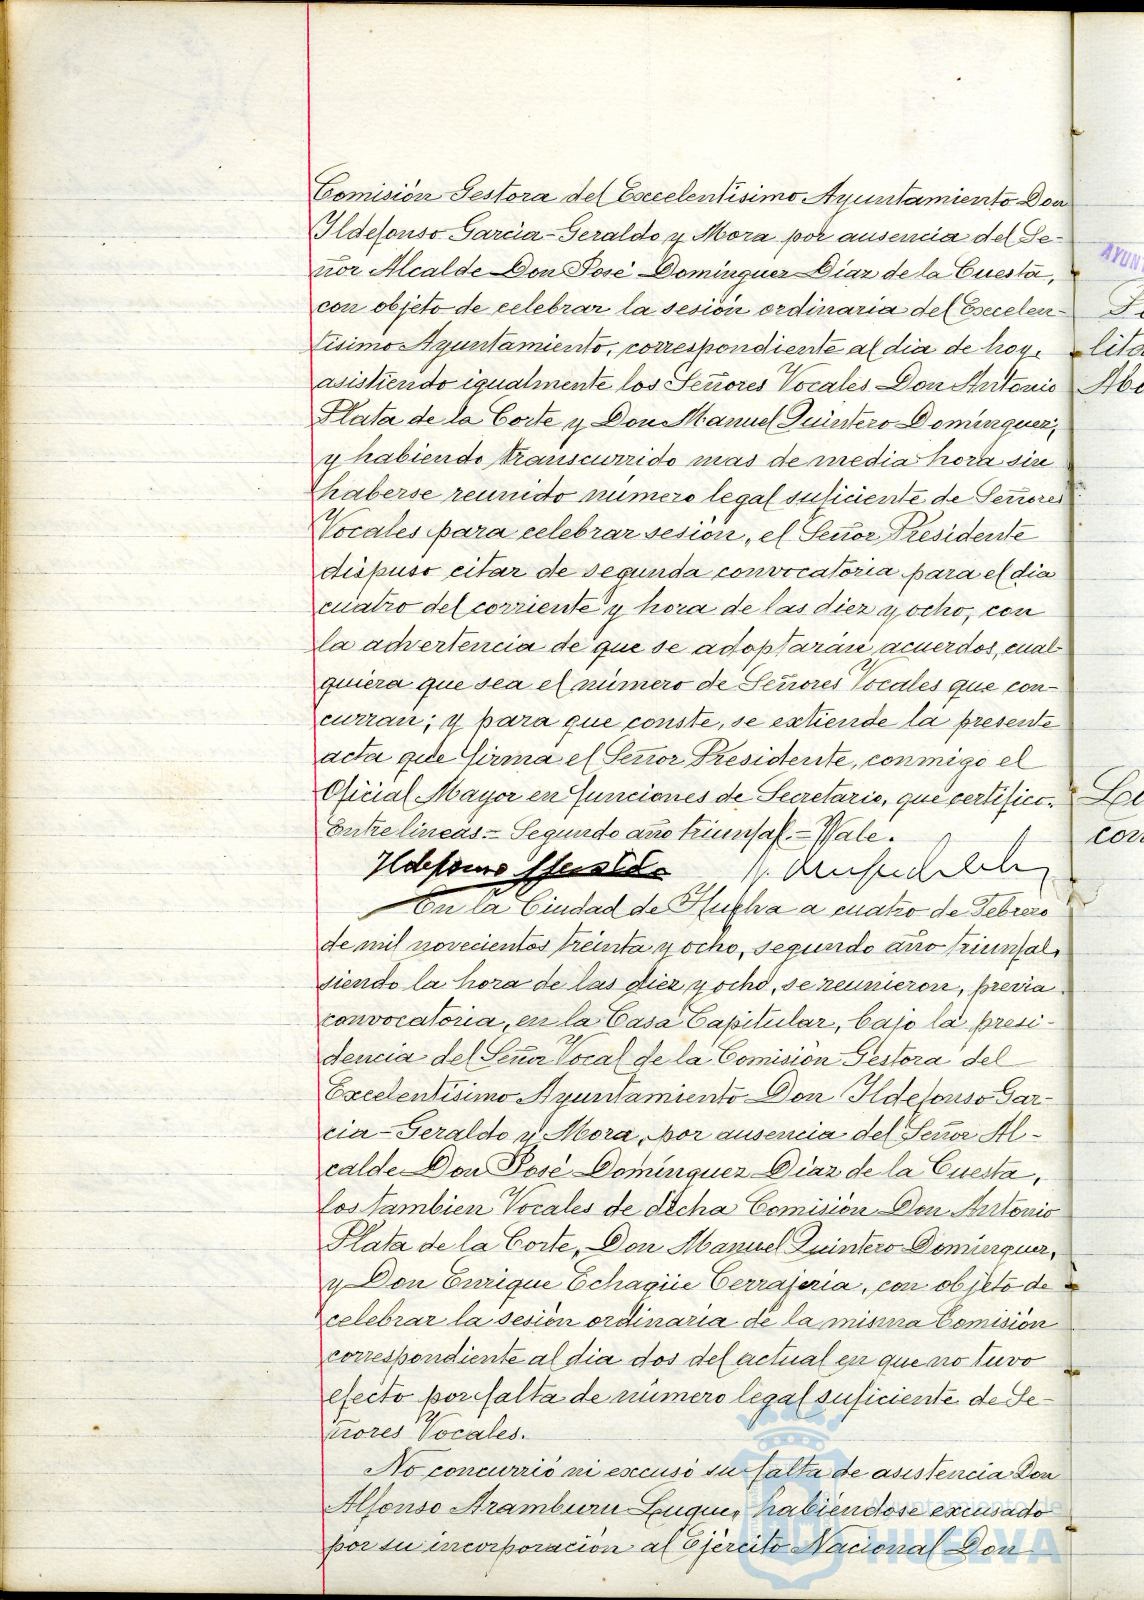 Comisión Gestora del Excelentísimo Ayuntamiento Don
Ildefonso Garcia-Geraldo y Mora por ausencia del Se-
ñor Alcalde Don José Domínguez Díaz de la Cuesta,
con objeto de celebrar la sesión ordinaria del Excelen-
tísimo Ayuntamiento, correspondiente al dia de hoy,
asistiendo igualmente los Señores Vocales Don Antonio
Plata de la Corte y Don Manuel Quintero Domínguez;
y habiendo transcurrido mas de media hora sin
haberse reunido número legal suficiente de Señores
Vocales para celebrar sesión, el Señor Presidente
dispuso citar de segunda convocatoria para el dia
cuatro del corriente y hora de las diez y ocho, con
la advertencia de que se adoptarán acuerdos, cual-
quiera que sea el número de Señores Vocales que con-
curran; y para que conste, se extiende la presente
acta que firma el Señor Presidente, conmigo el
Oficial Mayor en funciones de Secretario, que certifico.
Entrelineas.= Segundo año triunfal.= Vale.
Ildefonso GGeraldo
En la Ciudad de Huelva a cuatro de Febrero
de mil novecientos treinta y ocho, segundo año triunfal,
siendo la hora de las diez y ocho, se reunieron, previa
convocatoria, en la Casa Capitular, bajo la presi-
dencia del Señor Vocal de la Comisión Gestora del
Excelentísimo Ayuntamiento Don Ildefonso Gar-
cia-Geraldo y Mora, por ausencia del Señor Al-
calde Don José Domínguez Díaz de la Cuesta,
los tambien Vocales de dicha Comisión Don Antonio
Plata de la Corte, Don Manuel Quintero Domínguez,
y Don Enrique Echagüe Cerrajería, con objeto de
celebrar la sesión ordinaria de la misma Comisión
correspondiente al dia dos del actual en que no tuvo
efecto por falta de número legal suficiente de Se-
ñores Vocales.
No concurrió ni excusó su falta de asistencia Don
Alfonso Aramburu Luque, habiéndose excusado
por su incorporación al Ejército Nacional Don
Ayuntamiento de
HUELVA